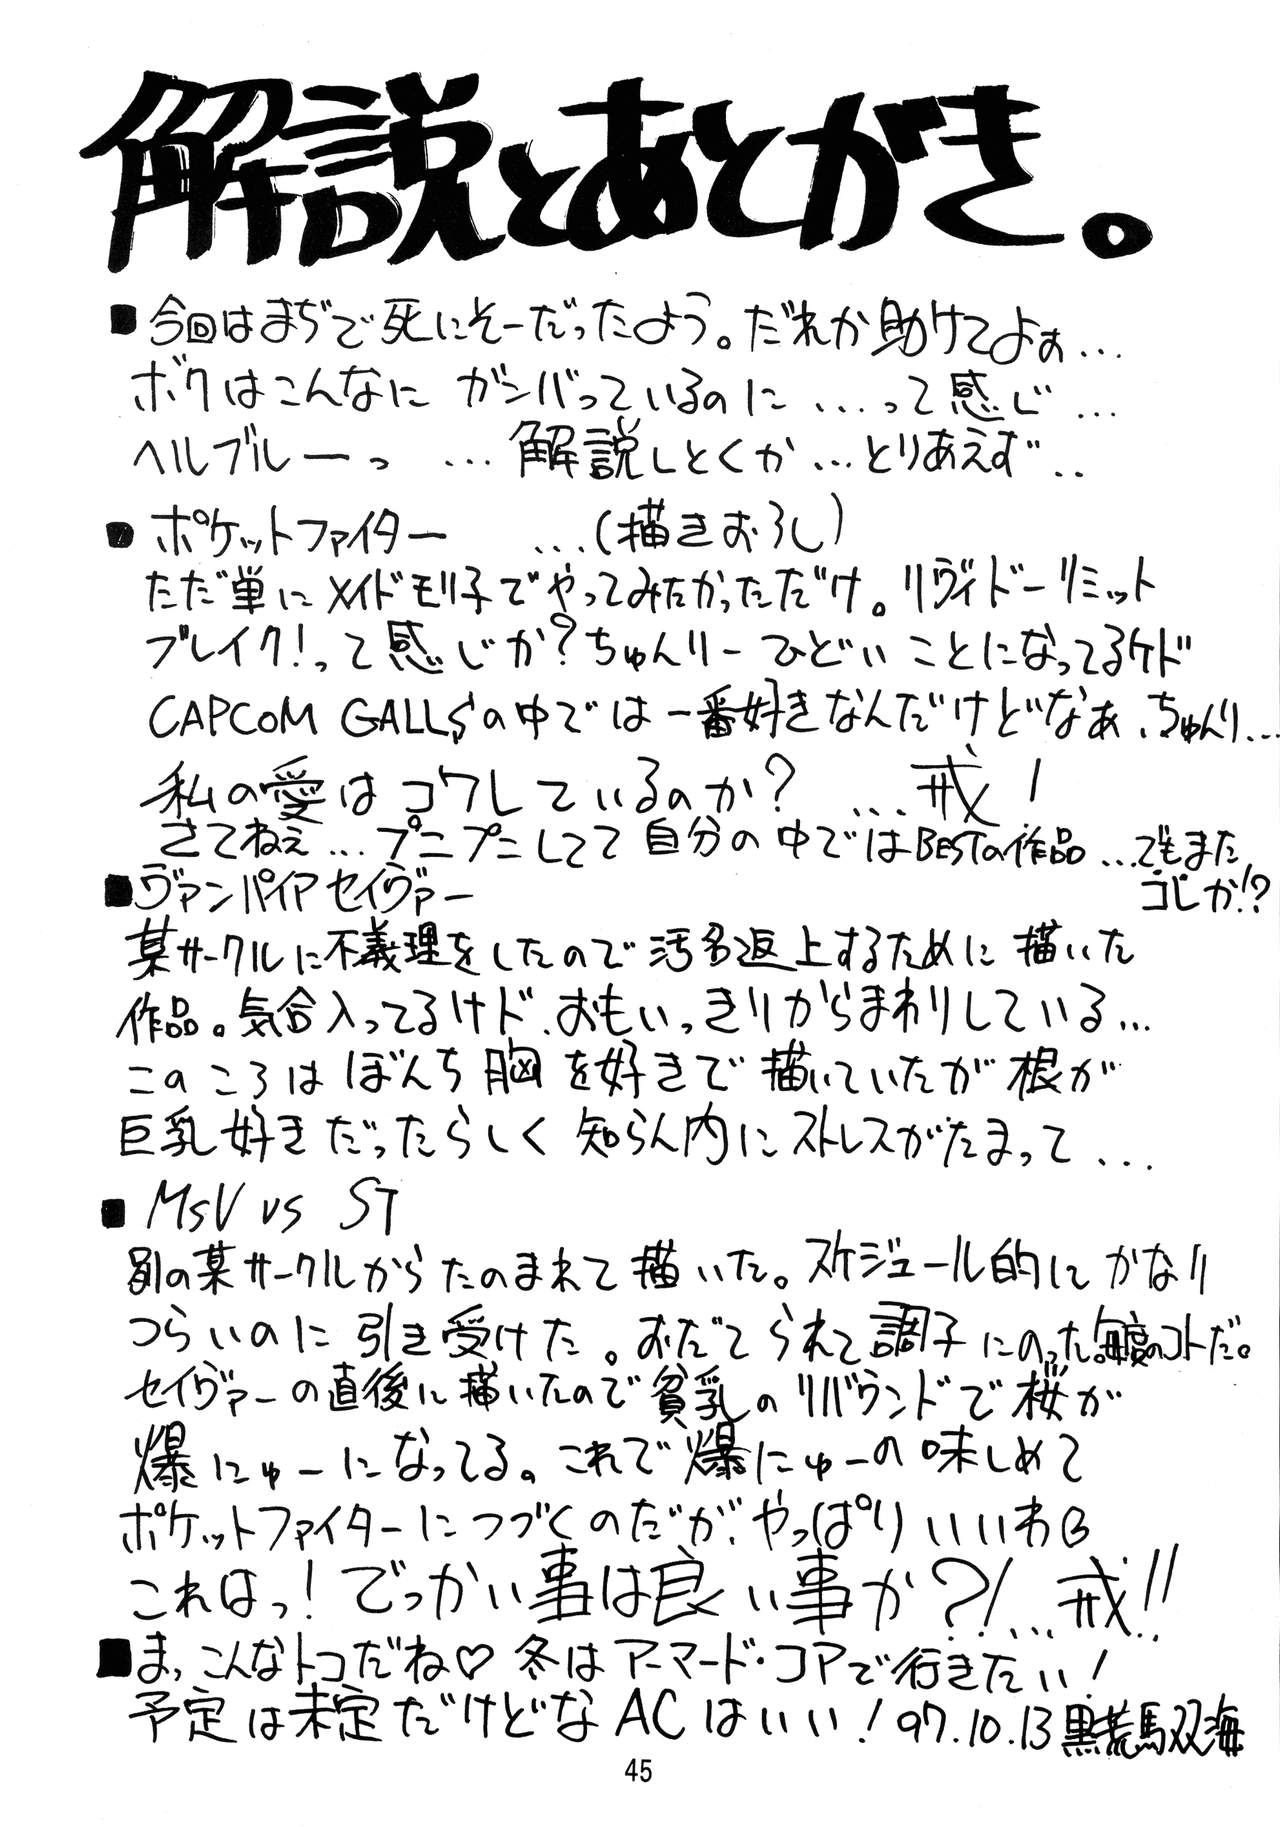 解説とあとがき。
■今回はまぢで死にそーだったよう。だれか助けてよぉ...
ボクはこんなに ガンバっているのに ...って感じ...
ヘルプルーっ ...解説しとくか...とりあえず..
■ポケットファイター ...(描きおろし)
ただ単にメイドモリ子でやってみたかっただけ。リヴィドーリミット
ブレイク!って感じか?ちゅんりー ひどいことになってるケド
CAPCOM GALLSの中では一番好きなんだけどなぁ、ちゅんり...
私の愛はコワレているのか? ...戒!
さてねぇ...プニプニしてて自分の中ではBESTの作品...でもまた
コレか!?
■ヴァンパイアセイヴァー
某サークルに不義理をしたので汚名返上するために描いた
作品。気合入ってるけド、おもいっきりからまわりしている...
このころは ぼんち胸を好きで描いていたが根が
巨乳好きだったらしく知らん内にストレスがたまって...
■MsV vs ST
別の某サークルからたのまれて描いた。スケジュール的にかなり
つらいのに引き受けた。おだてられて調子にのった。毎度のコトだ。
セイヴァーの直後に描いたので貧乳のリバウンドで桜が
爆にゅーになってる。これで爆にゅーの味しめて
ポケットファイターにつづくのだが、やっぱりいいわ
これはっ!でっかい事は良い事か?!...戒!!
■ま、こんなトコだね♡ 冬はアーマード・コアで行きたい!
予定は未定だけどな ACはいい! 97.10.13 黒荒馬双海
45